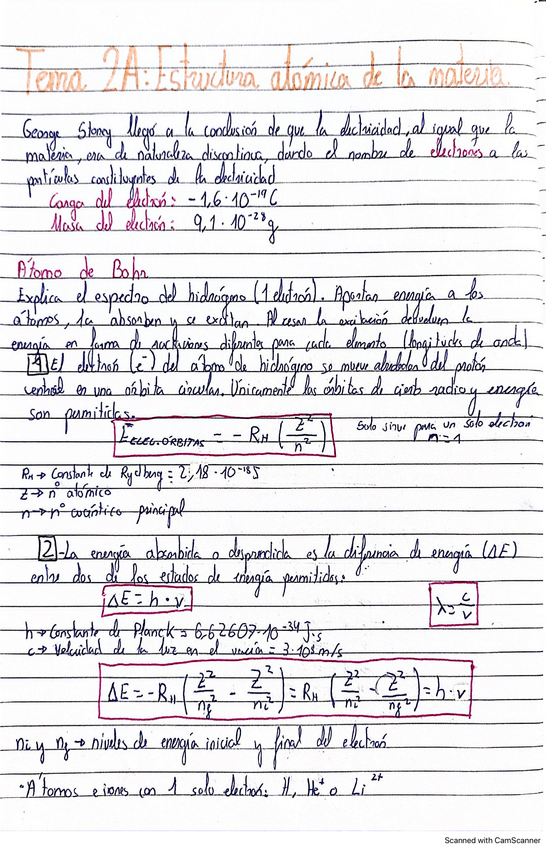 Tema 2A: Estructura atómica de la materia.
George Stoney llegó a la conclusión de que la electricidad, al igual que la
materia, era de naturaleza discontinua, dando el nombre de electrones a las
partículas constituyentes de la electricidad
Carga del electrón: -1,6·10⁻¹⁹C
Masa del electrón: 9,1·10⁻²⁸g
Átomo de Bohr
Explica el espectro del hidrógeno (1 electrón). Aportan energía a los
átomos, la absorben y se excitan. Al cesar la excitación devuelven la
energía en forma de radiaciones diferentes para cada elemento (longitudes de onda)
1 El electrón (e⁻) del átomo de hidrógeno se mueve alrededor del protón
central en una órbita circular. Únicamente las órbitas de cierto radio y energía
son permitidas.
E ELEC.ÓRBITAS = - R_H (Z²/n²)
Solo sirve para un solo electrón
n=1
R_H → Constante de Rydberg = 2,18·10⁻¹⁸J
Z → nº atómico
n → nº cuántico principal
2 -La energía absorbida o desprendida es la diferencia de energía (ΔE)
entre dos de los estados de energía permitidos.
ΔE = h·ν
λ = c/ν
h → Constante de Planck = 6,62607·10⁻³⁴J·s
c → Velocidad de la luz en el vacío = 3·10⁸m/s
ΔE = -R_H (Z²/n_f² - Z²/n_i²) = R_H (Z²/n_i² - Z²/n_f²) = h·ν
ni y nf → niveles de energía inicial y final del electrón
·Átomos e iones con 1 solo electrón: H, He⁺ o Li²⁺
Scanned with CamScanner